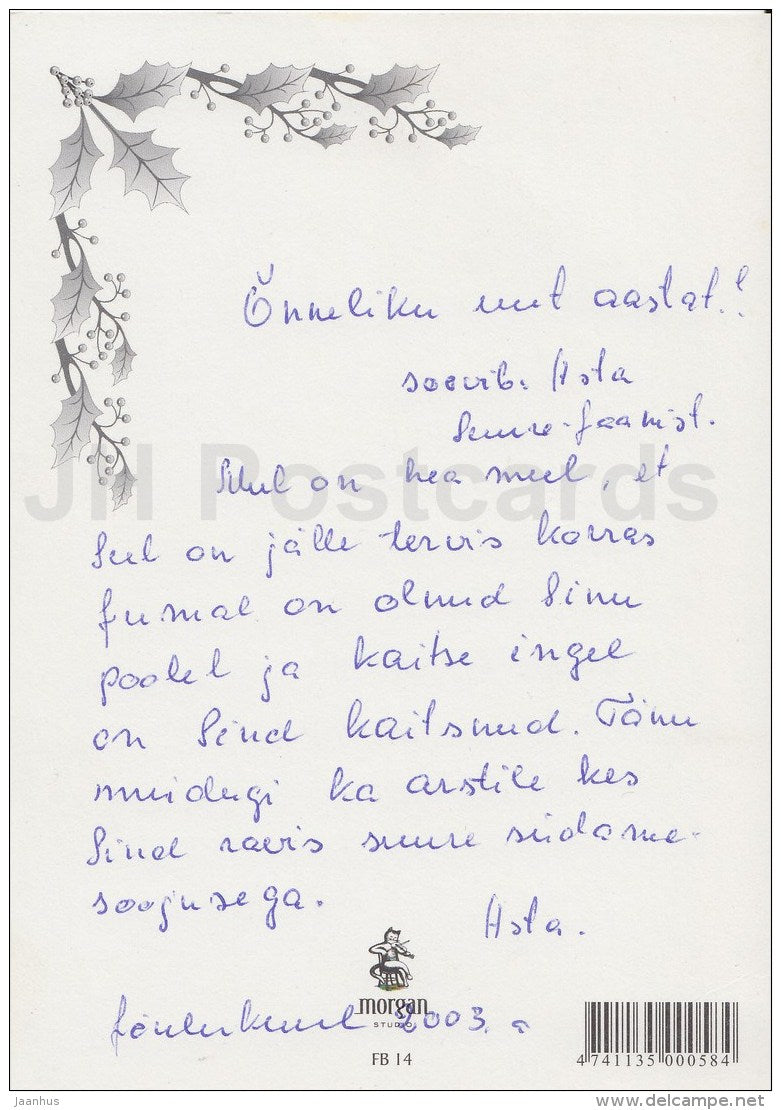 Õnneliku uut aastat!!
soovib. Asta
Suure-Jaanist.
Mul on hea meel, et
Sul on jälle tervis korras
Jumal on olnud Sinu
poolel ja kaitse ingel
on Sind kaitsnud. Tänu
muidugi ka arstile kes
Sind ravis suure südame-
soojusega.
Asta.
Jõulukuul 2003. a
morgan
STUDIO
FB 14
4 741135 000584
JH Postcards
Jaanhus
www.delcampe.net